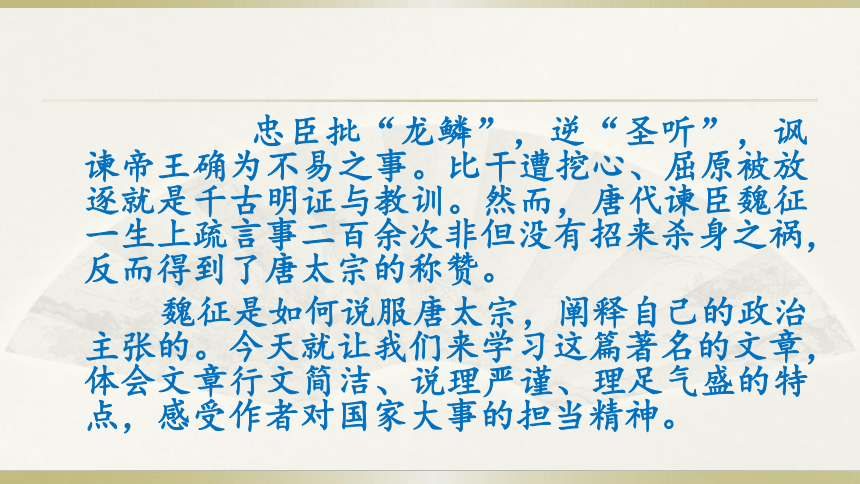 忠臣批“龙鳞”，逆“圣听”，讽
谏帝王确为不易之事。比干遭挖心、屈原被放
逐就是千古明证与教训。然而，唐代谏臣魏征
一生上疏言事二百余次非但没有招来杀身之祸，
反而得到了唐太宗的称赞。
魏征是如何说服唐太宗，阐释自己的政治
主张的。今天就让我们来学习这篇著名的文章，
体会文章行文简洁、说理严谨、理足气盛的特
点，感受作者对国家大事的担当精神。